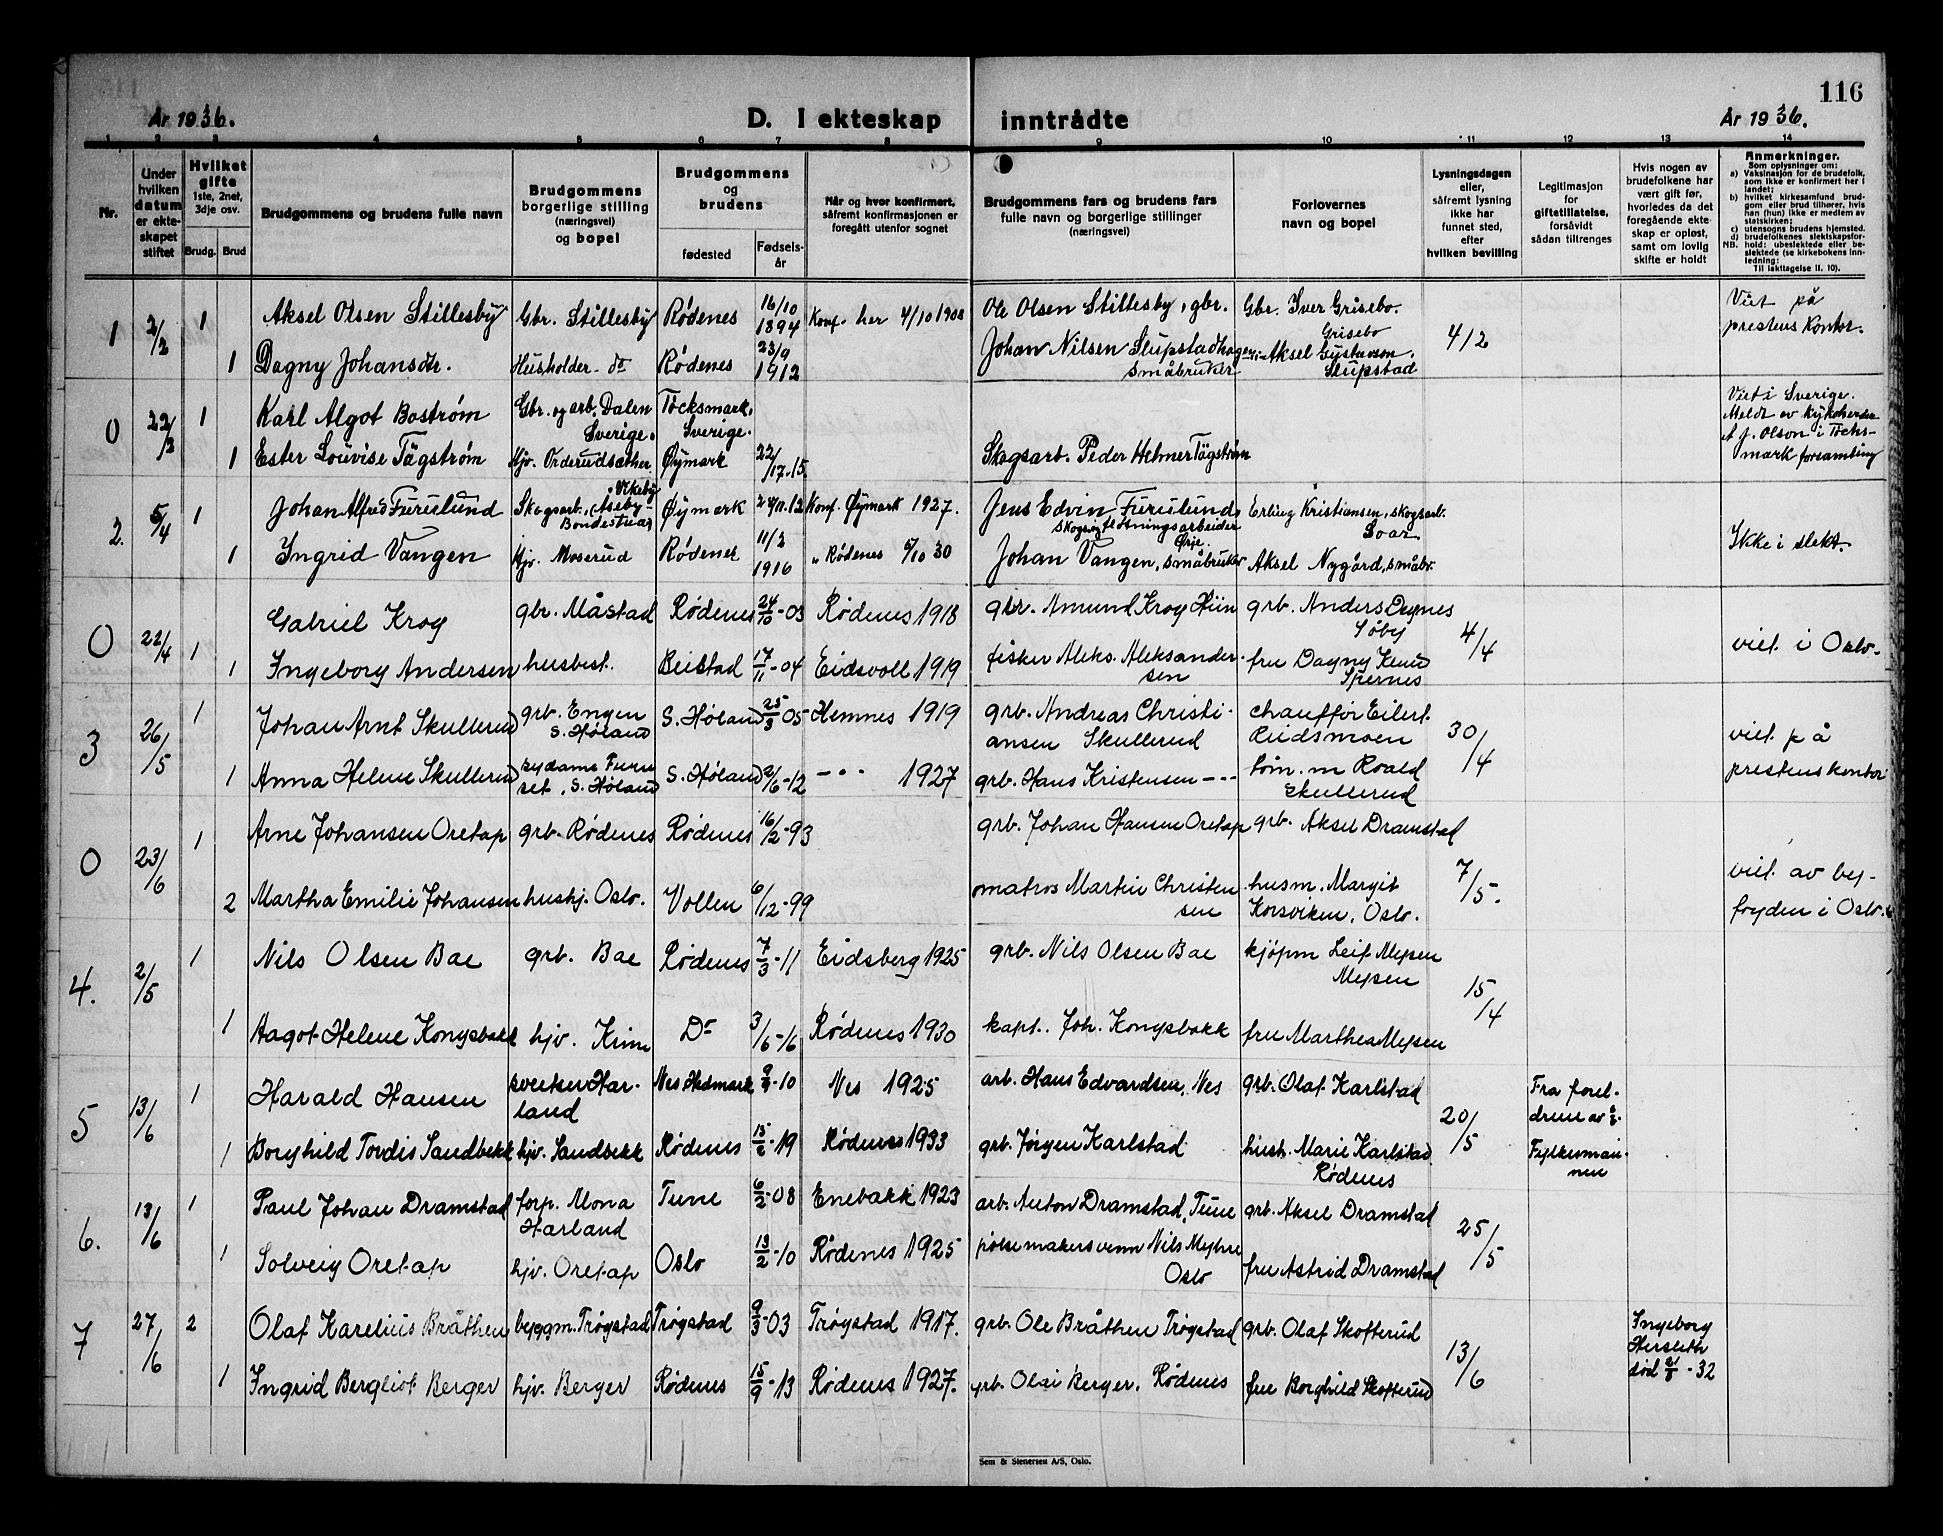 116
År 1936.
D. I ekteskap inntrådte
År 1936.
1 2 3 4 5 6 7 8 9 10 11 12 13 14
Nr.
Under hvilken datum er ekteskapet stiftet
Hvilket gifte 1ste, 2net, 3dje osv.
Brudg. Brud
Brudgommens og brudens fulle navn
Brudgommens borgerlige stilling (næringsvei) og bopel
Brudgommens og brudens
fødested
Fødsels-år
Når og hvor konfirmert, såfremt konfirmasjonen er foregått utenfor sognet
Brudgommens fars og brudens fars fulle navn og borgerlige stillinger (næringsvei)
Forlovernes navn og bopel
Lysningsdagen eller, såfremt lysning ikke har funnet sted, efter hvilken bevilling
Legitimasjon for giftetillatelse, forsåvidt sådan tiltrenges
Hvis nogen av brudefolkene har vært gift før, hvorledes da det foregående ekteskap er opløst, samt om lovlig skifte er holdt
Anmerkninger.
Som oplysninger om:
a) Vaksinasjon for de brudefolk, som ikke er konfirmert her i landet;
b) hvilket kirkesamfund brudgom eller brud tilhører, hvis han (hun) ikke er medlem av statskirken;
c) utensogns brudens hjemsted.
d) brudefolkenes slektskapsforhold: ubeslektede eller beslektede (se kirkebokens innledning:
NB. Til iakttagelse II. 10).
1 2/2 1 Aksel Olsen Stillesby Gbr. Stillesby Rødenes 16/10 1894 Konf. her 4/10 1908 Ole Olsen Stillesby, gbr. Gbr. Iver Grisebo. Grisebo 4/2 Viet på prestens kontor.
1 Dagny Johansdtr. Husholder. do Rødenes 23/9 1912 Johan Nilsen Slupstadhagen småbruker Aksel Gustavson, Slupstad
0 22/3 1 Karl Algot Bostrøm Gbr. og arb. Dalen Sverige. Tocksmark, Sverige. Viet i Sverige. Meldt av kykoherden J. Olson i Tocksmark forsamling
1 Ester Louvise Tägstrøm Hjv. Orderudsæther Øymark 22/ 17-15. Skogsarb. Peder Helmer Tägstrøm
2. 5/4 1 Johan Alfred Furulund Skogsarb. Vikeby Øymark 24/11.12 Konf. Øymark 1927. Jens Edvin Furulund skogs og fløtningsarbeider Ørje. Erling Kristiansen, skogsarb. Ikke i slekt.
1 Ingrid Vangen Hjv. Moserud Rødenes 11/3 1916 " Rødenes 5/10 30 Johan Vangen, småbruker Aksel Nygård, småbr.
0 22/4 1 Gabriel Krog gbr. Måstad Rødenes 24/10-03 Rødenes 1918 gbr. Amund Krog Hiin grb. Anders Dagnes Søby 4/4 viet i Oslo.
1 Ingeborg Andersen husbest. Beistad 17/11-04 Eidsvoll 1919 fisker Aleks. Aleksandersen fru Dagny
3 26/5 1 Johan Arnt Skullerud grb. Engen S. Høland S. Høland 25/3 05 Hemnes 1919 grb. Andreas Christiansen Skullerud chauffør Eilert Rudsmoen 30/4 viet på prestens kontor
1 Anna Helene Skullerud sydame Furuset, S. Høland S. Høland 2/6-12 - " - 1927 grb. Hans Kristensen - " - tøm. m Roald Skullerud
0 23/6 1 Arne Johansen Oretap grb. Rødenes Rødenes 16/2-93 grb. Johan Hansen Oretap grb. Aksel Dramstad 7/5. viet av byfogden i Oslo.
2 Martha Emilie Johansen hushj. Oslo. Vollen 6/12-99 matros Martin Christensen husm. Margit Korsviken, Oslo.
4. 2/5 1 Nils Olsen Bae grb. Bae Rødenes 7/3-11 Eidsberg 1925 grb. Nils Olsen Bae kjøpm Leif Mysen Mysen 15/4
1 Aagot Helene Kongsbakk hjv. Krime Do 3/6-16 Rødenes 1930 kapt. Joh. Kongsbakk fru Marthea Mysen
5 13/6 1 Harald Hansen sveitser Harland Nes Hedmark 9/9-10 Nes 1925 arb. Hans Edvardsen, Nes grb. Olaf Karlstad 20/5 Fra foreldrene av Fylkesmannen
1 Borghild Tordis Sandbekk hjv. Sandbekk Rødenes 15/2-19 Rødenes 1933 grb. Jørgen Karlstad hush. Marie Karlstad Rødenes
6. 13/6 1 Paul Johan Dramstad forp. Mona Harland Tune 6/2-08 Enebakk 1923 arb. Anton Dramstad, Tune grb. Aksel Dramstad 25/5
1 Solveig Oretap hjv. Oretap Oslo 13/2-10 Rødenes 1925 pølsemakersvenn Nils Myhre Oslo fru Astrid Dramstad
7 27/6 2 Olaf Karelius Bråthen byggm. Trøgstad Trøgstad 9/3-03 Trøgstad 1917. grb. Ole Bråthen Trøgstad grb. Olaf Skofterud 13/6 Ingeborg Hersleth død 21/8-32
1 Ingrid Bergliot Berger hjv. Berger Rødenes 15/9-13 Rødenes 1927. grb. Olai Berger. Rødenes fru Borghild Skofterud
Sem & Stenersen A/S, Oslo.